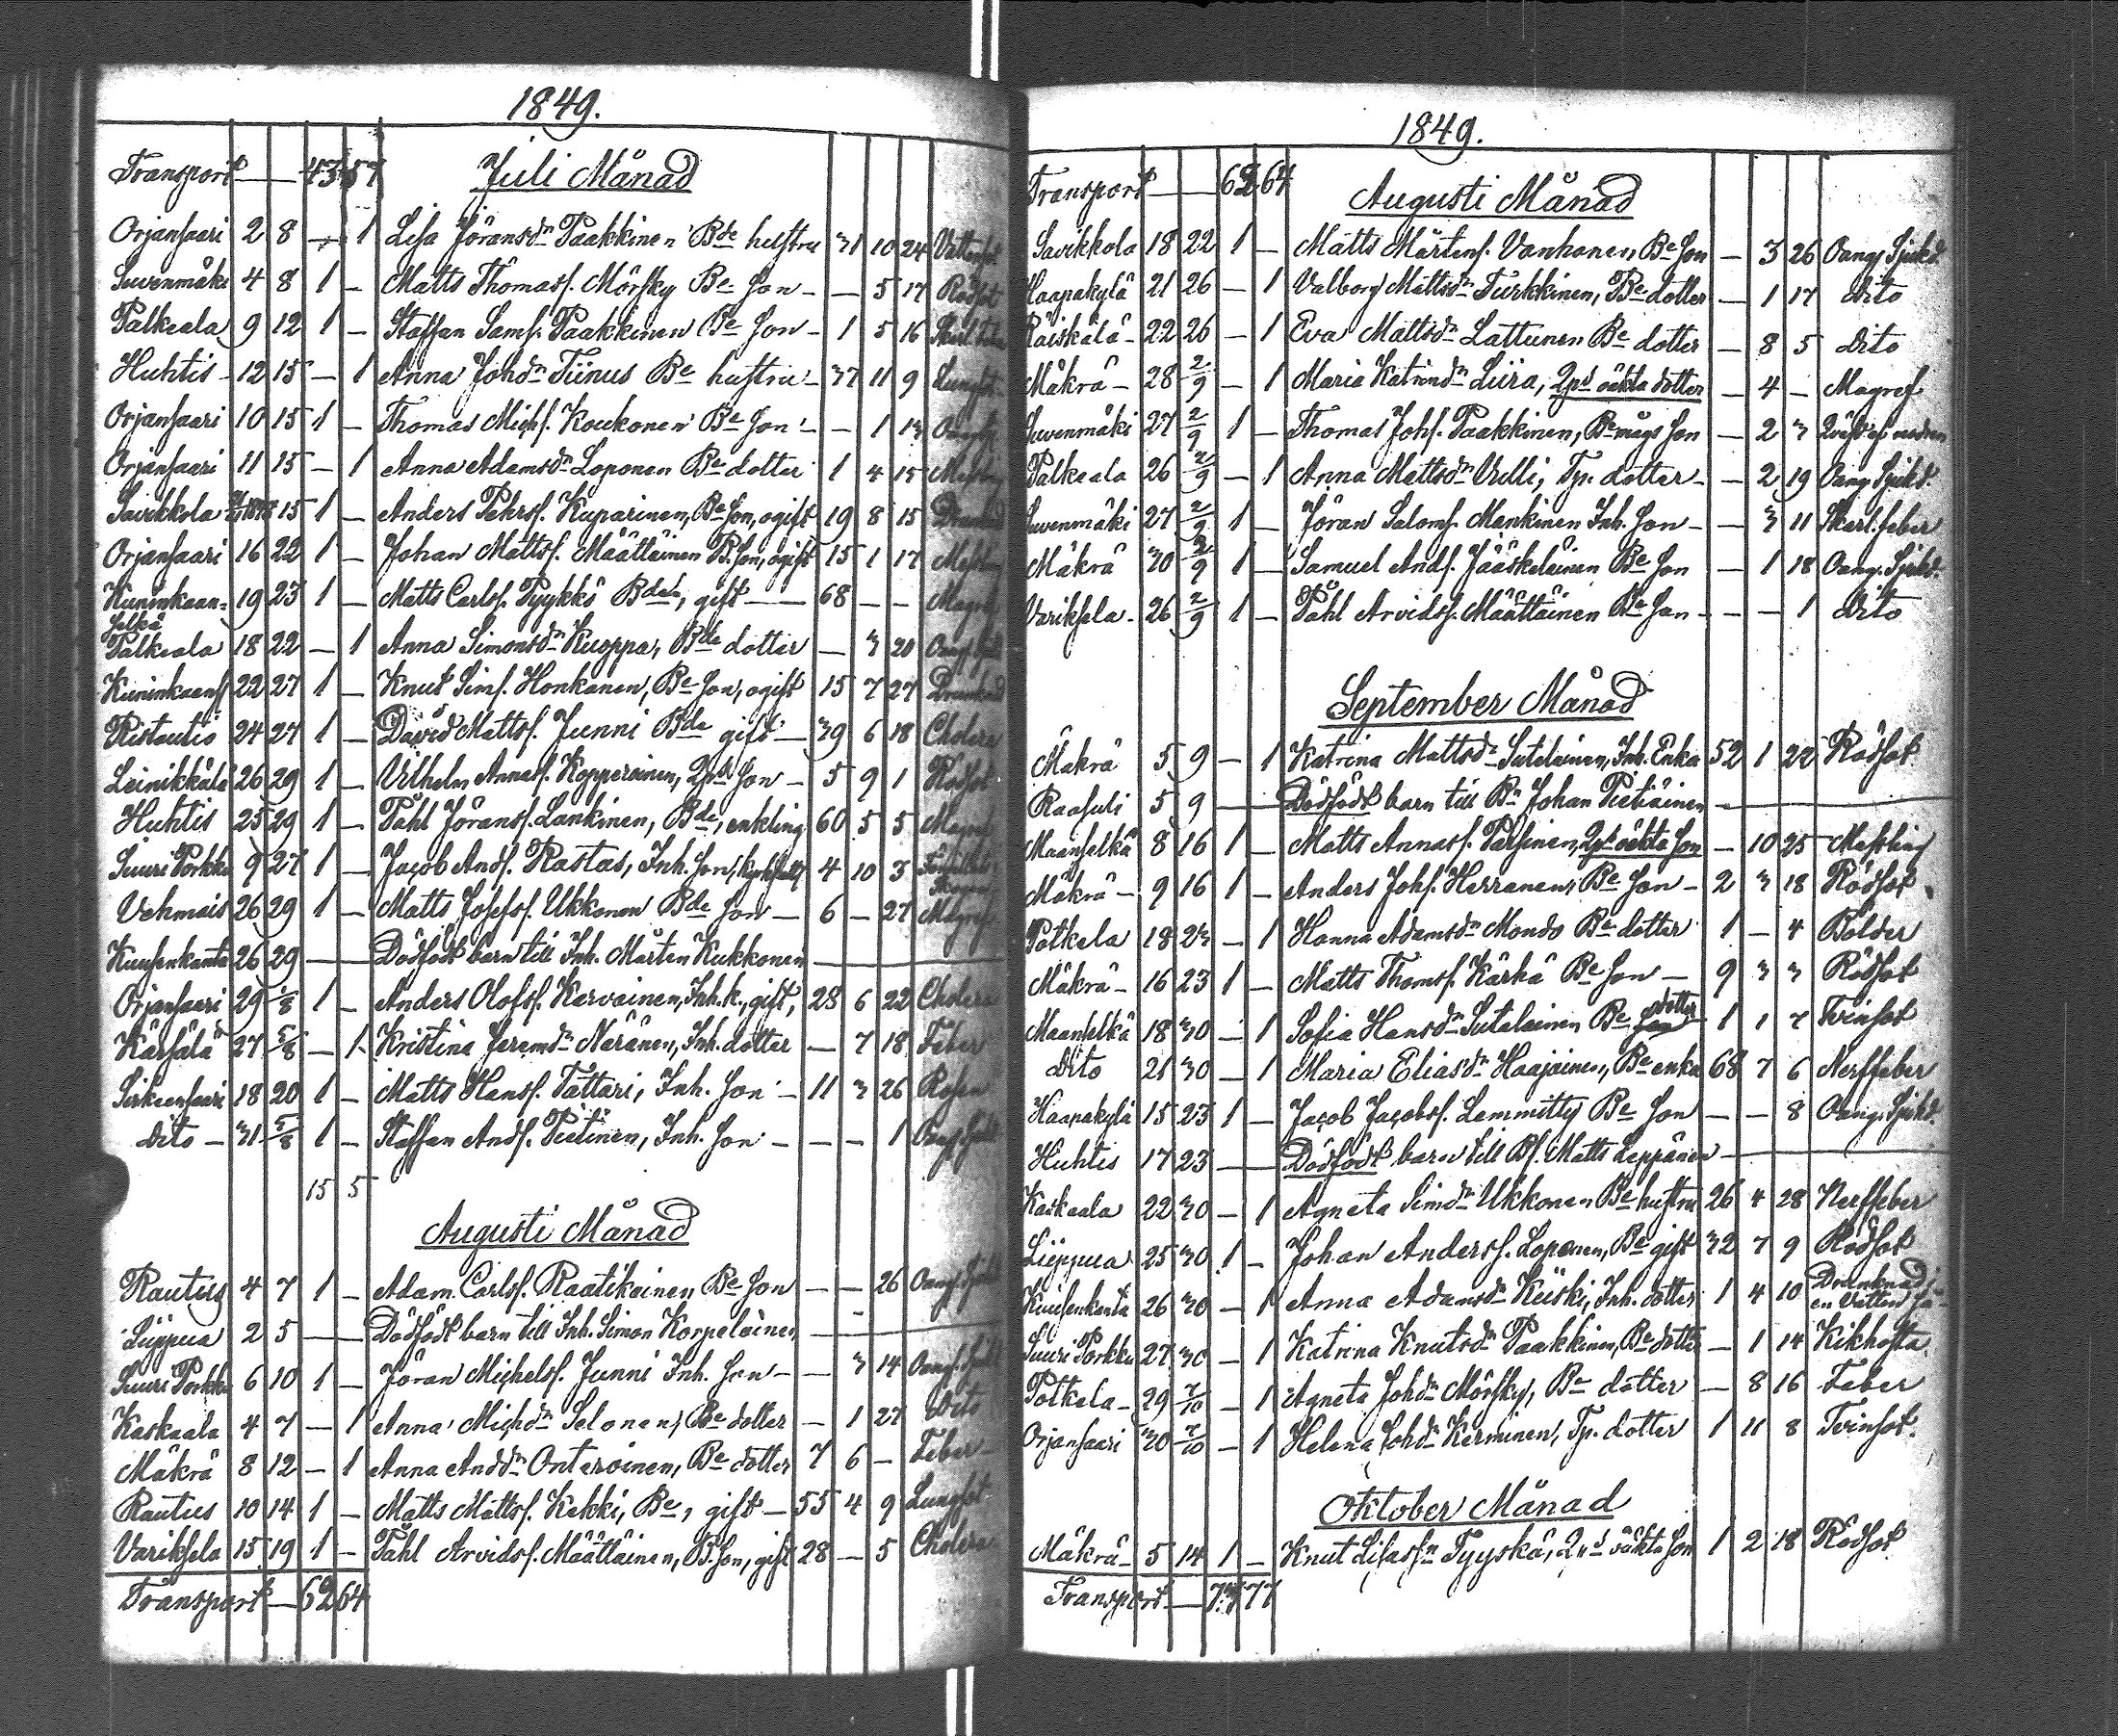 1849.
Transport — 43 57 Juli Månad
Orjansaari 2 8 — 1 Lisa Jöransdn Paakkinen Bde hustru 31 10 24 Vattusot
Suvenmäki 4 8 1 — Matts Thomass. Mörsky Be Son — — 5 17 Rödsot
Palkeala 9 12 1 — Staffan Sams. Paakkinen Be Son — 1 5 16 Skarl. feber
Huhtis — 12 15 — 1 Anna Johdn Tiinus Be hustru — 37 11 9 Lungsot
Orjansaari 10 15 1 — Thomas Michs. Koukonen Be Son — — 1 13
Orjansaari 11 15 — 1 Anna Adamsdn Loponen Be dotter 1 4 15 Messling
Savikkola 15 1 — Anders Pehrs. Kuparinen, Be Son, ogift 19 8 15 Drunknad
Orjansaari 16 22 1 — Johan Mattss. Määttäinen B. Son, ogift 15 1 17 Messling
Kuninkaan= 19 23 1 — Matts Carls. Pyykkö Bde, gift — — 68 — — Magref
selkä
Palkeala 18 22 — 1 Anna Simonsdn Kuoppa, Bde dotter — 3 20 Oang. Sjuk
Kuninkaans 22 27 1 — Knut Sims. Honkanen, Be Son, ogift 15 7 27 Drunknad
Ristautio 24 27 1 — David Mattss. Junni Bde gift — 39 6 18 Cholera
Leinikkälä 26 29 1 — Vilhelm Annass. Kopperoinen, Qpd Son — 5 9 1 Rödsot
Huhtis 25 29 1 — Påhl Jörans. Lankinen, Bde, enkling 60 5 5 Magref
Suuri Porkku 9 27 1 — Jacob Ands. Rastas, Inh. Son, 4 10 3
Vehmais 26 29 1 — Matts Josefs. Ukkonen Bde Son — 6 — 27 Magref
Kuusenkanta 26 29 — — Dödfödt barn till Inh. Mårten Kukkonen —
Orjansaari 29 1/8 1 — Anders Olofs. Karvainen, Inh. k., gift, 28 6 22 Cholera
Kärsälä 27 5/8 — 1 Kristina Jeremdn Näränen, Inh. dotter — 7 18 Feber
Sirkiensaari 18 20 1 — Matts Hanss. Tattari, Inh. Son — 11 3 26 Rosen
dito — 31 5/8 1 — Staffan Ands. Pietinen, Inh. Son — — — 1 Oang. Sjuk
15 5
Augusti Månad
Rautus 4 7 1 — Adam Carls. Raatikainen Be Son — — 26 Oang. Sjuk
Liippua 2 5 — — Dödfödt barn till Inh. Simon Korpelainen —
Suuri Porkku 6 10 1 — Jöran Michels. Junni Inh. Son — — 3 14 Oang. Sjuk
Kaskaala 4 7 — 1 Anna Michdn Selonen, Be dotter — 1 27 dito
Mäkrä 8 12 — 1 Anna Anddn Onteroinen, Be dotter 7 6 — Feber
Rautus 10 14 1 — Matts Mattss. Kekki, Be, gift — 55 4 9 Lungsot
Variksela 15 19 1 — Påhl Arvids. Määttäinen, B. Son, gift 28 — 5 Cholera
Transport — 62 64
1849.
Transport — 62 64 Augusti Månad
Savikkola 18 22 1 — Matts Mårtens. Vanhanen, Be Son — 3 26 Oang. Sjukd.
Haapakylä 21 26 — 1 Valborg Mattsdn Turkkinen, Be dotter — 1 17 dito
Räiskälä — 22 26 — 1 Eva Mattsdn Lattunen Be dotter — 8 5 dito
Mäkrä — 28 2/9 — 1 Maria Katrindn Liira, Qpd oäkta dotter — 4 — Magref
Suvenmäki 27 2/9 1 — Thomas Johs. Paakkinen, Be mågs Son — 2 3
Palkeala 26 2/9 — 1 Anna Mattsdn Velli, Tp. dotter — — 2 19 Oang. Sjukd.
Suvenmäki 27 2/9 1 — Jöran Saloms. Mankinen Inh. Son — — 3 11 Skarl. feber
Mäkrä 30 2/9 1 — Samuel Ands. Jääskeläinen Be Son — 1 18 Oang. Sjukd.
Variksela — 26 2/9 1 — Påhl Arvidss. Määttäinen Be Son — — — 1 dito
September Månad
Mäkrä 5 9 — 1 Katrina Mattsdn Sutelainen, Inh. Enka 52 1 22 Rödsot
Raasuli 5 9 — — Dödfödt barn till Bn Johan Pietiäinen —
Maanselkä 8 16 1 — Matts Annass. Parsinen, Qpd oäkta Son — 10 25 Messling
Mäkrä — 9 16 1 — Anders Johs. Herranen, Be Son — 2 3 18 Rödsot
Potkela 18 23 — 1 Hanna Adamsdn Mondo Be dotter 1 — 4 Bölder
Mäkrä — 16 23 1 — Matts Thoms. Kärkä Be Son — 9 3 3 Rödsot
Maanselkä 18 30 — 1 Sofia Hansdn Sutelainen Be Son dotter 1 1 7 Tvinsot
dito 21 30 — 1 Maria Eliasdn Haajainen, Be enka 68 7 6 Nerffeber
Haapakylä 15 23 1 — Jacob Jacobss. Lemmitty Be Son — — 8 Oang. Sjukd.
Huhtis 17 23 — — Dödfödt barn till Bs. Matts Leppänen —
Kaskaala 22 30 — 1 Agneta Simdn Ukkonen Be hustru 26 4 28 Nerffeber
Liippua 25 30 1 — Johan Anderss. Loponen, Be gift 32 7 9 Rödsot
Kuusenkanta 26 30 — 1 Anna Adamsdn Kiiski, Inh. dotter 1 4 10 Drunknad i
en Vatten
Suuri Porkku 27 30 — 1 Katrina Knutsdn Paakkinen, Be dotter — 1 14 Kikhosta
Potkela — 29 7/10 — 1 Agneta Johdn Mörsky, Be dotter — 8 16 Feber
Orjansaari 30 7/10 — 1 Helena Johdn Kerminen, Tp. dotter 1 11 8 Tvinsot.
Oktober Månad
Mäkrä — 5 14 1 — Knut Lisassn Tyyskä, Qpd oäkta Son 1 2 18 Rödsot
Transport — 73 77